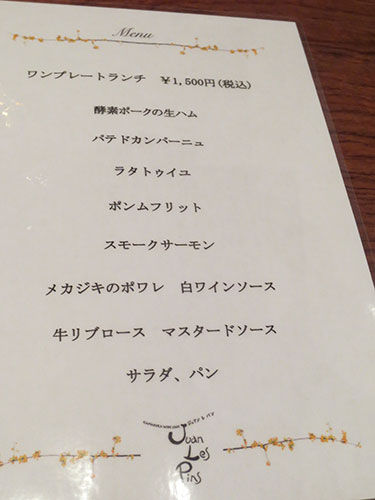 Menu
ワンプレートランチ ￥1,500円(税込)
酵素ポークの生ハム
パテドカンパーニュ
ラタトゥイユ
ポンムフリット
スモークサーモン
メカジキのポワレ 白ワインソース
牛リブロース マスタードソース
サラダ、パン
Juan
Les
Pins